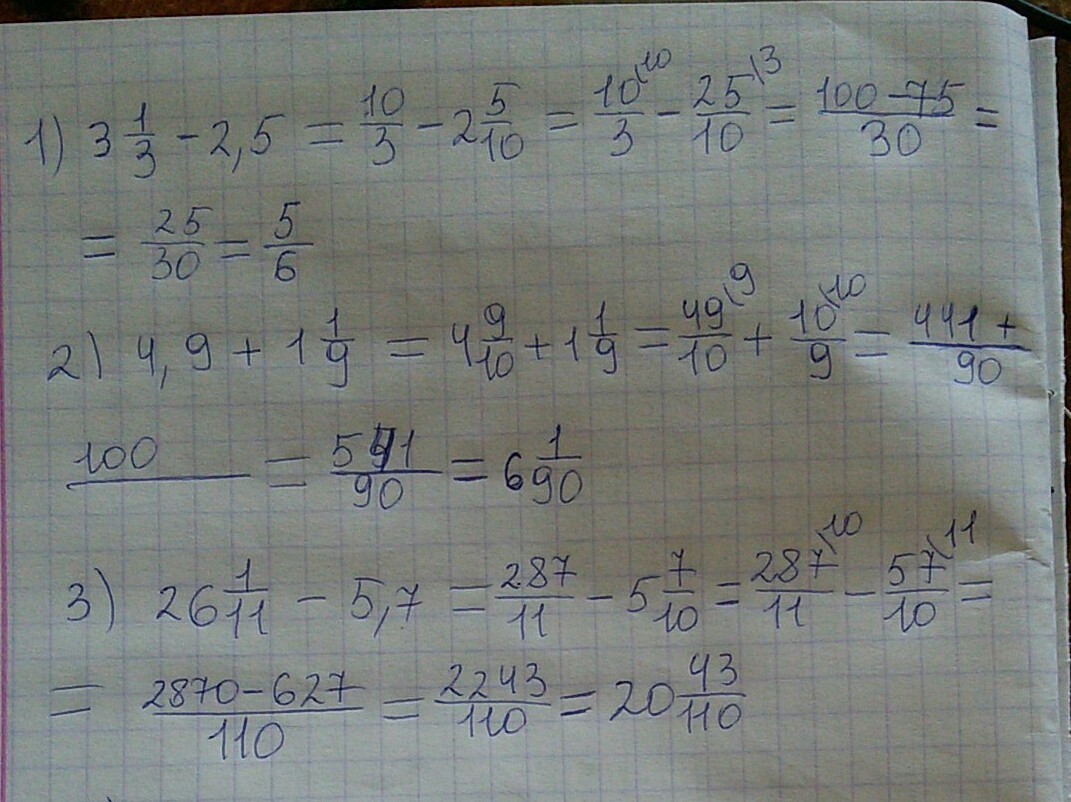 1) 3 1/3 - 2,5 = 10/3 - 2 5/10 = 10\10/3 - 25\3/10 = 100-75/30 =
= 25/30 = 5/6
2) 4,9 + 1 1/9 = 4 9/10 + 1 1/9 = 49\9/10 + 10\10/9 = 441+/90
100/ = 541/90 = 6 1/90
3) 26 1/11 - 5,7 = 287/11 - 5 7/10 = 287\10/11 - 57\11/10 =
= 2870-627/110 = 2243/110 = 20 43/110